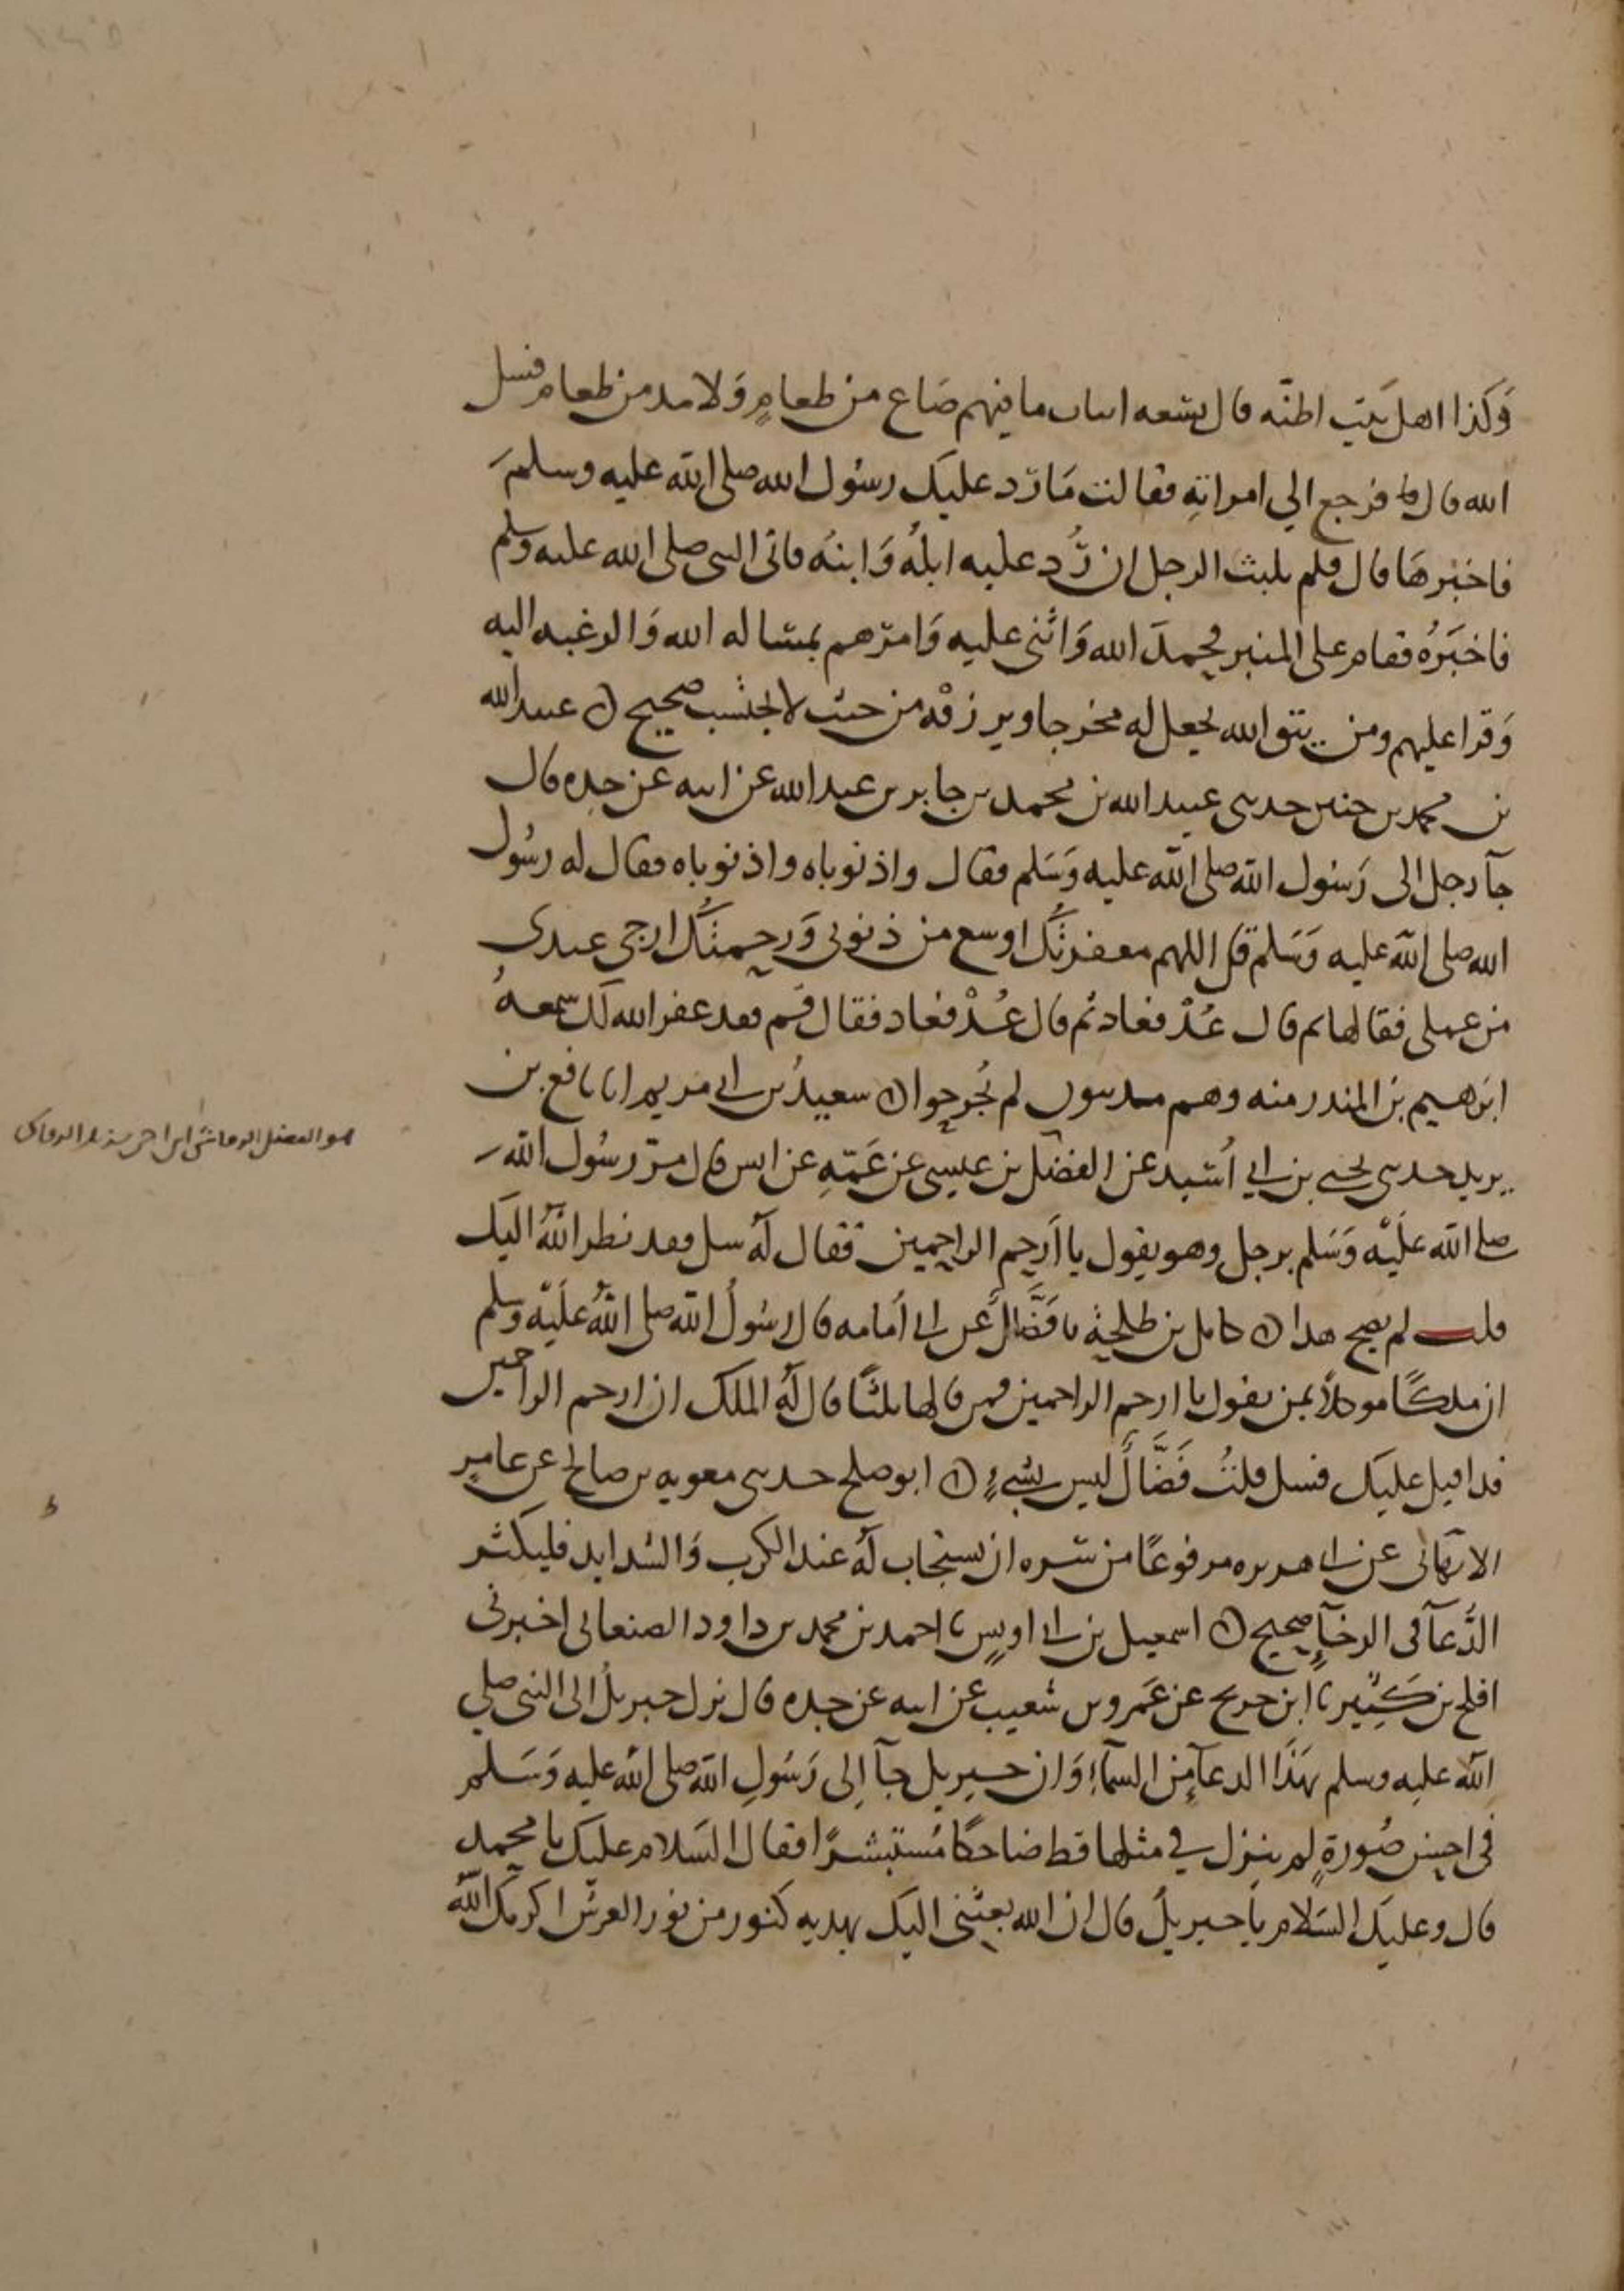 وَكذا اهل بَيت اظنّه قال تسعه ابيات ما فيهم صَاع من طعامٍ وَلا مد من طعام فسل
الله قال فرجع الي امراتهِ فقالت مَا رَد عليك رسُول الله صلى الله عليه وسلمَ
فاخبرهَا قال فلم يلبث الرجل ان رُّد عليه ابلهُ وَابنهُ فاتى النبى صلى الله عليه وسلم
فاخبَرُه فقام على المنبر فحمدَ الله وَاثنى عليه وَامرهم بمسالة الله وَالرغبه اليه
وَقرا عليهم ومن يتق الله يجعل له مخرجا ويرزقْه من حيث لا يحتسب صحيح ۞ عبيد الله
بن محمد بن حنين حدثنى عبيد الله بن محمد بن جابر بن عبد الله عن ابيه عن جده قال
جآ رجل الى رَسُول الله صلى الله عليه وَسَلم فقال واذنوباه واذنوباه فقال له رسُول
الله صلى الله عليه وَسَلم قل اللهم مغفرتُك اوسع من ذنوبى وَرحمتُك ارجى عندى
من عملى فقالها ثم قال عُدْ فعاد ثم قال عُدْ فعاد فقال قم فقد غفر الله لك سمعهُ
ابرهيم بن المنذر منه وهم مدنيون لم يُجرحوا ۞ سعيدُ بن ابى مريم انا نافع بن
يزيد حدثنى يحيى بن ابي أسَيد عن الفضل بن عيسى عن عَمّهِ عن انس قال مرّ رسُول الله
صلى الله عَليْه وَسَلم برجل وهو يقول يا اَرحم الراحمين فقال لهُ سل فقد نظر اللهُ اليَك
قلت لم يصح هذا ۞ كامل بن طلحة نا فَضَّال عن ابى اُمامه قال رسُولُ الله صلى اللهُ عَليْه وسلم
ان ملكًا موكلاً بمن يقول يا ارحم الراحمين فمن قالها ثلثًا قال لهُ الملك ان ارحم الراحمين
قد اقبل عليك فسل قلتُ فَضَّالٌ ليس بشيءٍ ۞ ابو صلح حدثنى معويه بن صالح عن عامرٍ
الالهانى عن ابى هريره مرفوعًا من سَره ان يستجاب لهُ عند الكرب وَالشدايد فليكثر
الدُّعآ فى الرخآءِ صحيح ۞ اسمعيل بن ابى اويس نا احمد بن محمد بن داود الصنعانى اخبرنى
افلح بن كَثِيْر نا ابن جريج عن عَمرو بن شعيب عن ابيه عن جده قال نزل جبريلُ الى النبى صلي
الله عليه وسلم بهَذا الدعآءِ من السمآءِ وَان جبريل جآ الى رَسُولِ الله صلى الله عليه وَسَلم
فى احسن صُورةٍ لم ينزل في مثلها قط ضاحكًا مُستبشرًا فقال السَلام عليَك يا محمد
قال وعليك السَلام يا جبريلُ قال ان الله بعثنى اليك بهديه كنوز من نور العرش اكرمك الله